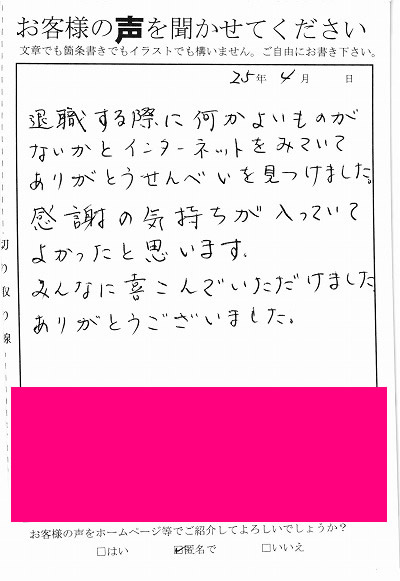 お客様の声を聞かせてください
文章でも箇条書きでもイラストでも構いません。ご自由にお書き下さい。
25年 4月 日
退職する際に何かよいものが
ないかとインターネットをみていて
ありがとうせんべいを見つけました。
感謝の気持ちが入っていて
よかったと思います.
みんなに喜こんでいただけました
ありがとうございました。
切り取り線
お客様の声をホームページ等でご紹介してよろしいでしょうか?
□はい ☑匿名で □いいえ